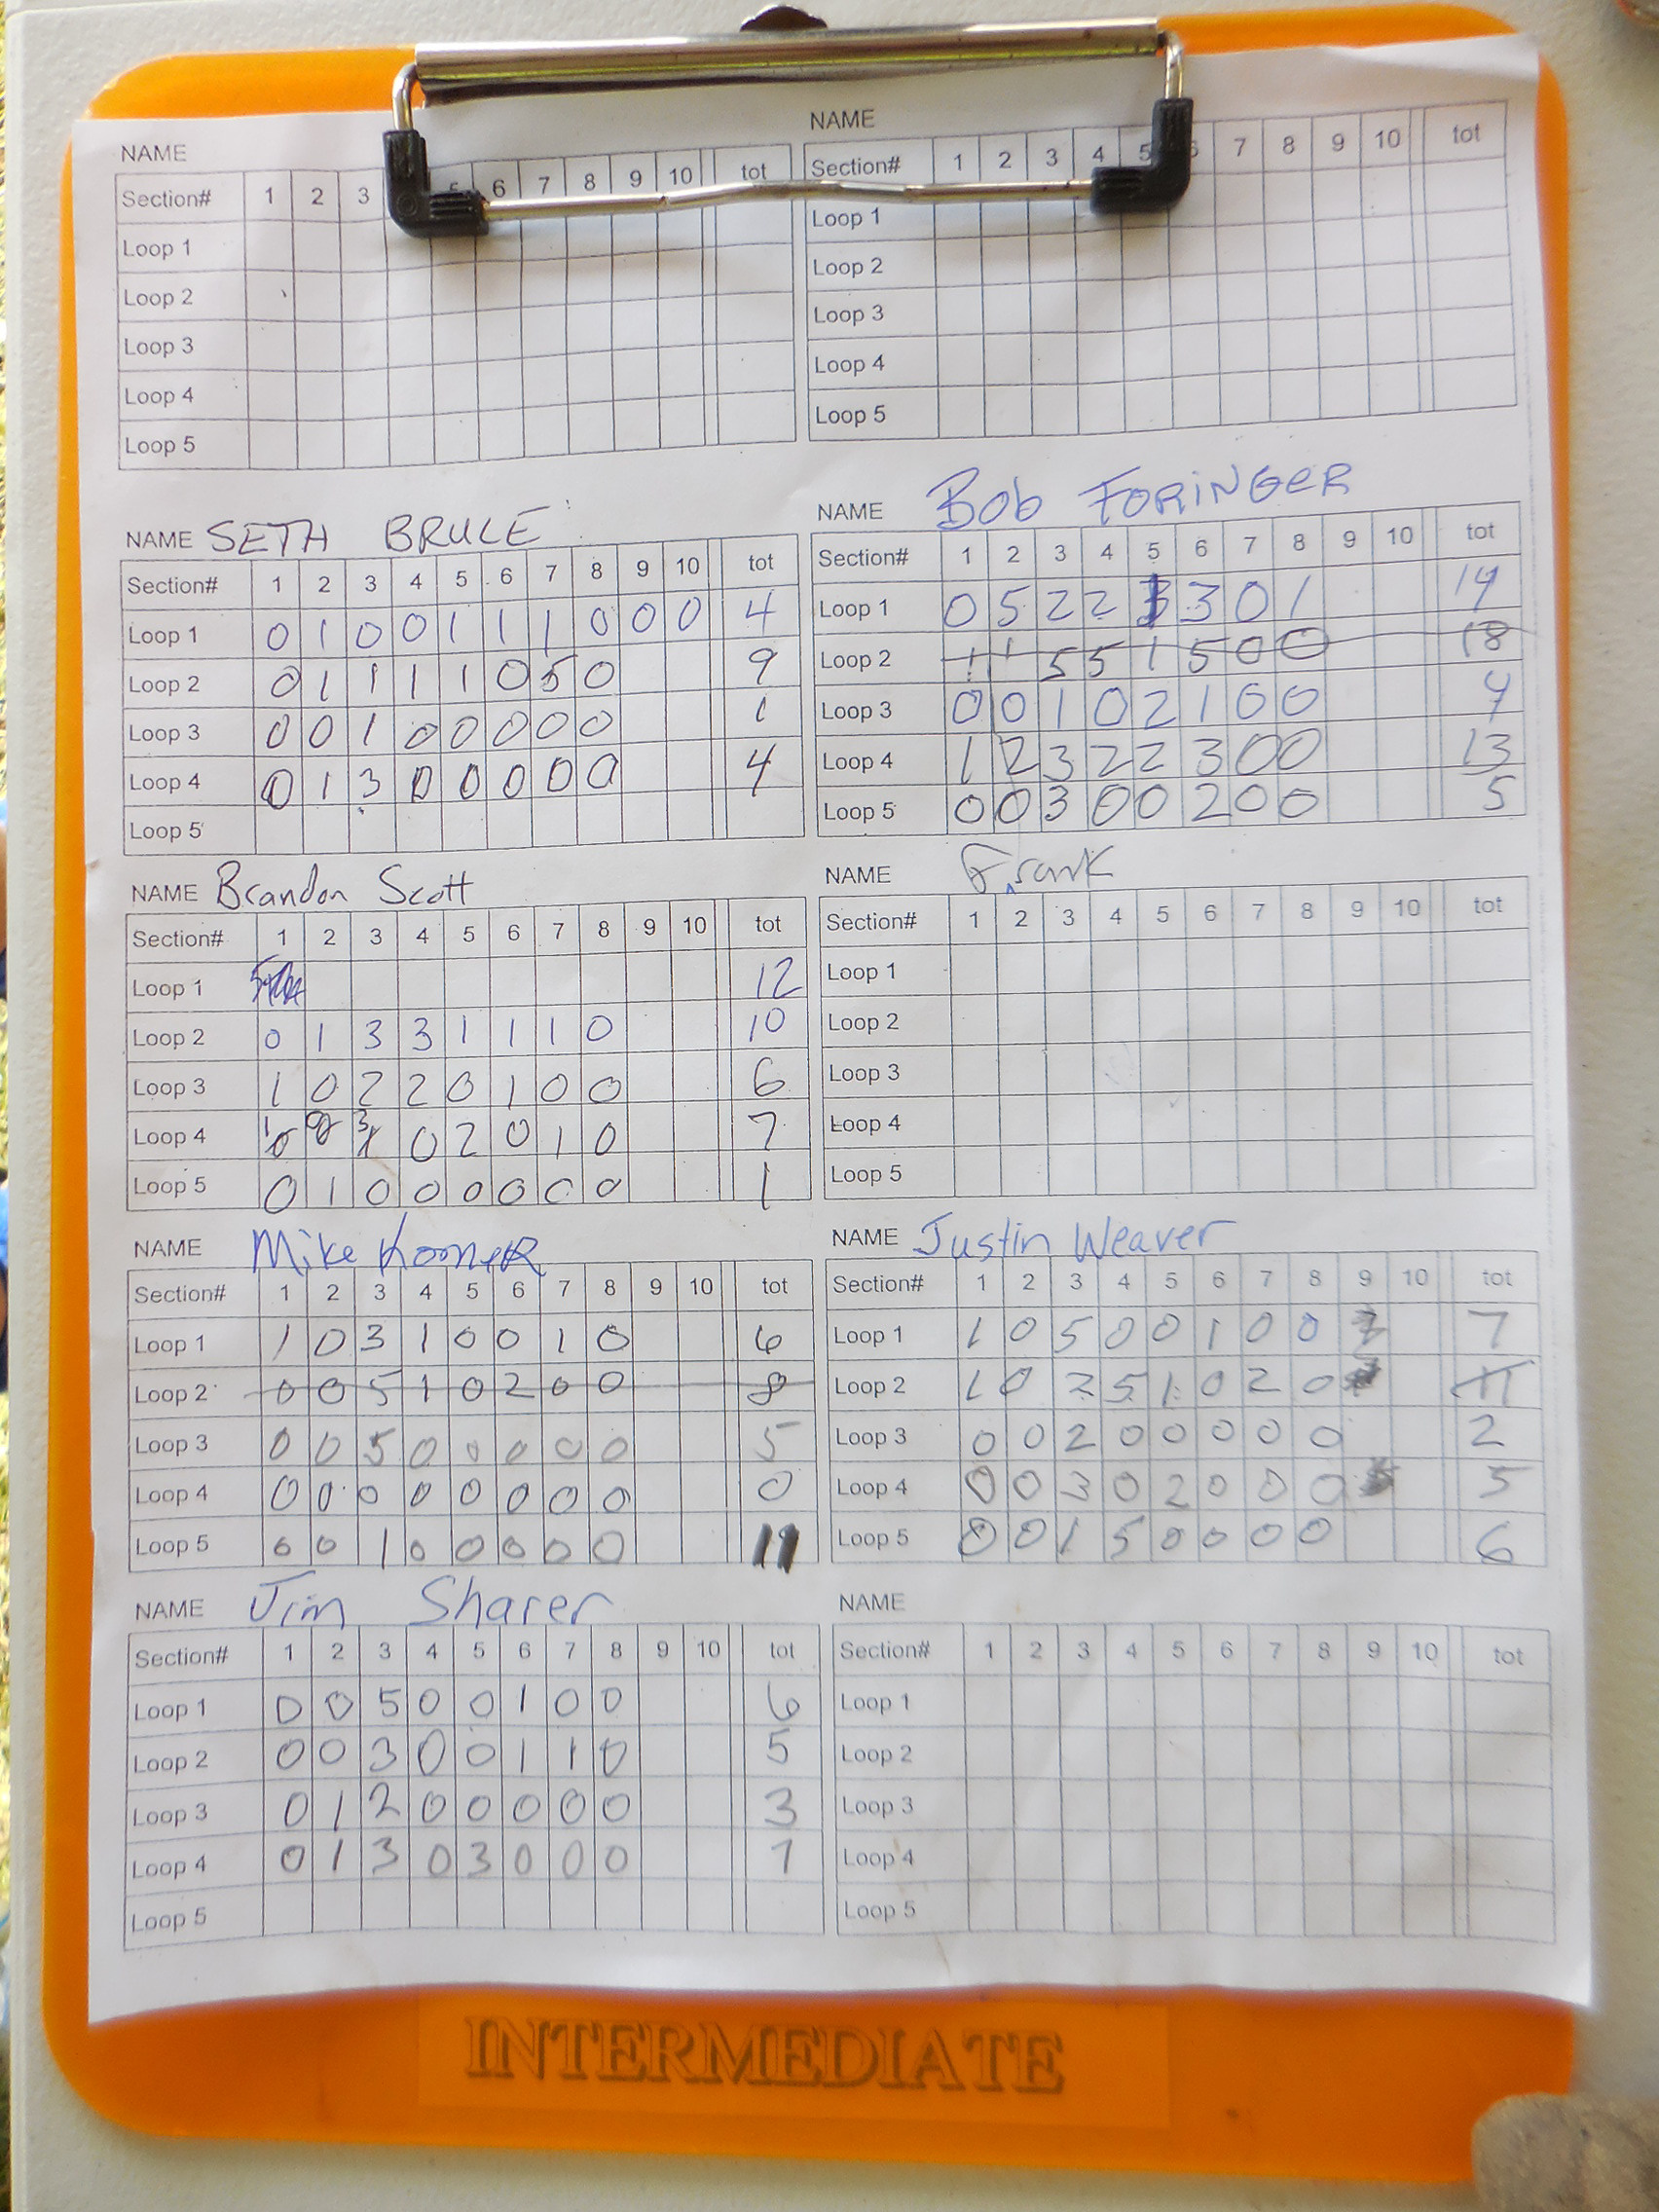 NAME
Section# 1 2 3 5 6 7 8 9 10 tot
Loop 1
Loop 2
Loop 3
Loop 4
Loop 5
NAME
Section# 1 2 3 4 5 6 7 8 9 10 tot
Loop 1
Loop 2
Loop 3
Loop 4
Loop 5
NAME SETH BRUCE
Section# 1 2 3 4 5 6 7 8 9 10 tot
Loop 1 0 1 0 0 1 1 1 0 0 0 4
Loop 2 0 1 1 1 1 0 5 0 9
Loop 3 0 0 1 0 0 0 0 0 1
Loop 4 0 1 3 0 0 0 0 0 4
Loop 5
NAME Bob FORINGER
Section# 1 2 3 4 5 6 7 8 9 10 tot
Loop 1 0 5 2 2 3 0 1 14
Loop 2 1 1 5 5 1 5 0 0 18
Loop 3 0 0 1 0 2 1 0 0 4
Loop 4 1 2 3 2 2 3 0 0 13
Loop 5 0 0 3 0 0 2 0 0 5
NAME Brandon Scott
Section# 1 2 3 4 5 6 7 8 9 10 tot
Loop 1 12
Loop 2 0 1 3 3 1 1 1 0 10
Loop 3 1 0 2 2 0 1 0 0 6
Loop 4 1 0 3 0 2 0 1 0 7
Loop 5 0 1 0 0 0 0 0 0 1
NAME Frank
Section# 1 2 3 4 5 6 7 8 9 10 tot
Loop 1
Loop 2
Loop 3
Loop 4
Loop 5
NAME Mike
Section# 1 2 3 4 5 6 7 8 9 10 tot
Loop 1 1 0 3 1 0 0 1 0 6
Loop 2 0 0 5 1 0 2 0 0 8
Loop 3 0 0 5 0 0 0 0 0 5
Loop 4 0 0 0 0 0 0 0 0 0
Loop 5 0 0 1 0 0 0 0 0
NAME Justin Weaver
Section# 1 2 3 4 5 6 7 8 9 10 tot
Loop 1 1 0 5 0 0 1 0 0 7
Loop 2 1 0 2 5 1 0 2 0 11
Loop 3 0 0 2 0 0 0 0 0 2
Loop 4 0 0 3 0 2 0 0 0 5
Loop 5 0 0 1 5 0 0 0 0 6
NAME Jim Sharer
Section# 1 2 3 4 5 6 7 8 9 10 tot
Loop 1 0 0 5 0 0 1 0 0 6
Loop 2 0 0 3 0 0 1 1 0 5
Loop 3 0 1 2 0 0 0 0 0 3
Loop 4 0 1 3 0 3 0 0 0 7
Loop 5
NAME
Section# 1 2 3 4 5 6 7 8 9 10 tot
Loop 1
Loop 2
Loop 3
Loop 4
Loop 5
INTERMEDIATE